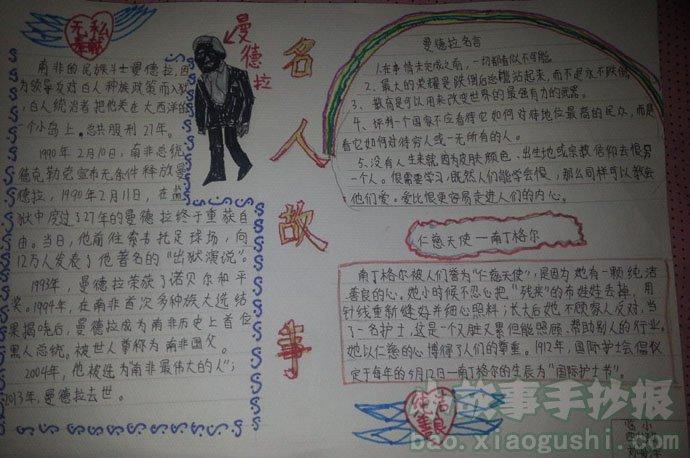 无私
奉献
南非的民族斗士曼德拉,因
为领导反对白人种族政策而入狱,
白人统治者把他关在大西洋的
一个小岛上。总共服刑27年。
1990年2月10日,南非总统
德克勒克宣布无条件释放曼
德拉,1990年2月11日,在监
狱中度过了27年的曼德拉终于重获自
由。当日,他前往索韦托足球场,向
12万人发表了他著名的“出狱演说”。
1993年,曼德拉荣获了诺贝尔和平
奖。1994年,在南非首次多种族大选结
果揭晓后,曼德拉成为南非历史上首位
黑人总统。被世人尊称为南非国父。
2004年,他被选为“南非最伟大的人”;
2013年,曼德拉去世。
曼德拉
名人故事
曼德拉名言
1.在事情未完成之前,一切都看似不可能。
2、最大的荣耀是跌倒后总能站起来,而不是永不跌倒。
3、教育是可以用来改变世界的最强有力的武器。
4、评判一个国家不应看待它如何对待地位最高的民众,而是
看它如何对待穷人或一无所有的人。
5、没有人生来就因为皮肤颜色、出生地或宗教信仰去恨另
一个人。恨需要学习,既然人们能学会恨,那么同样可以教会
他们爱。爱比恨更容易走进人们的内心。
仁慈天使—南丁格尔
南丁格尔被人们誉为“仁慈天使”,是因为她有一颗纯洁
善良的心。她小时候不忍心把“残来”的布娃娃丢掉,用
针线重新缝好并细心照料;长大后她不顾家人反对,当
了一名护士,这是一个又脏又累但能照顾、帮助别人的行业。
她以仁慈的心博得了人们的尊重。1912年,国际护士会倡议
定于每年的5月12日—南丁格尔的生辰为“国际护士书”。
纯洁
善良
小故事手抄报
bao.xiaogushi.com